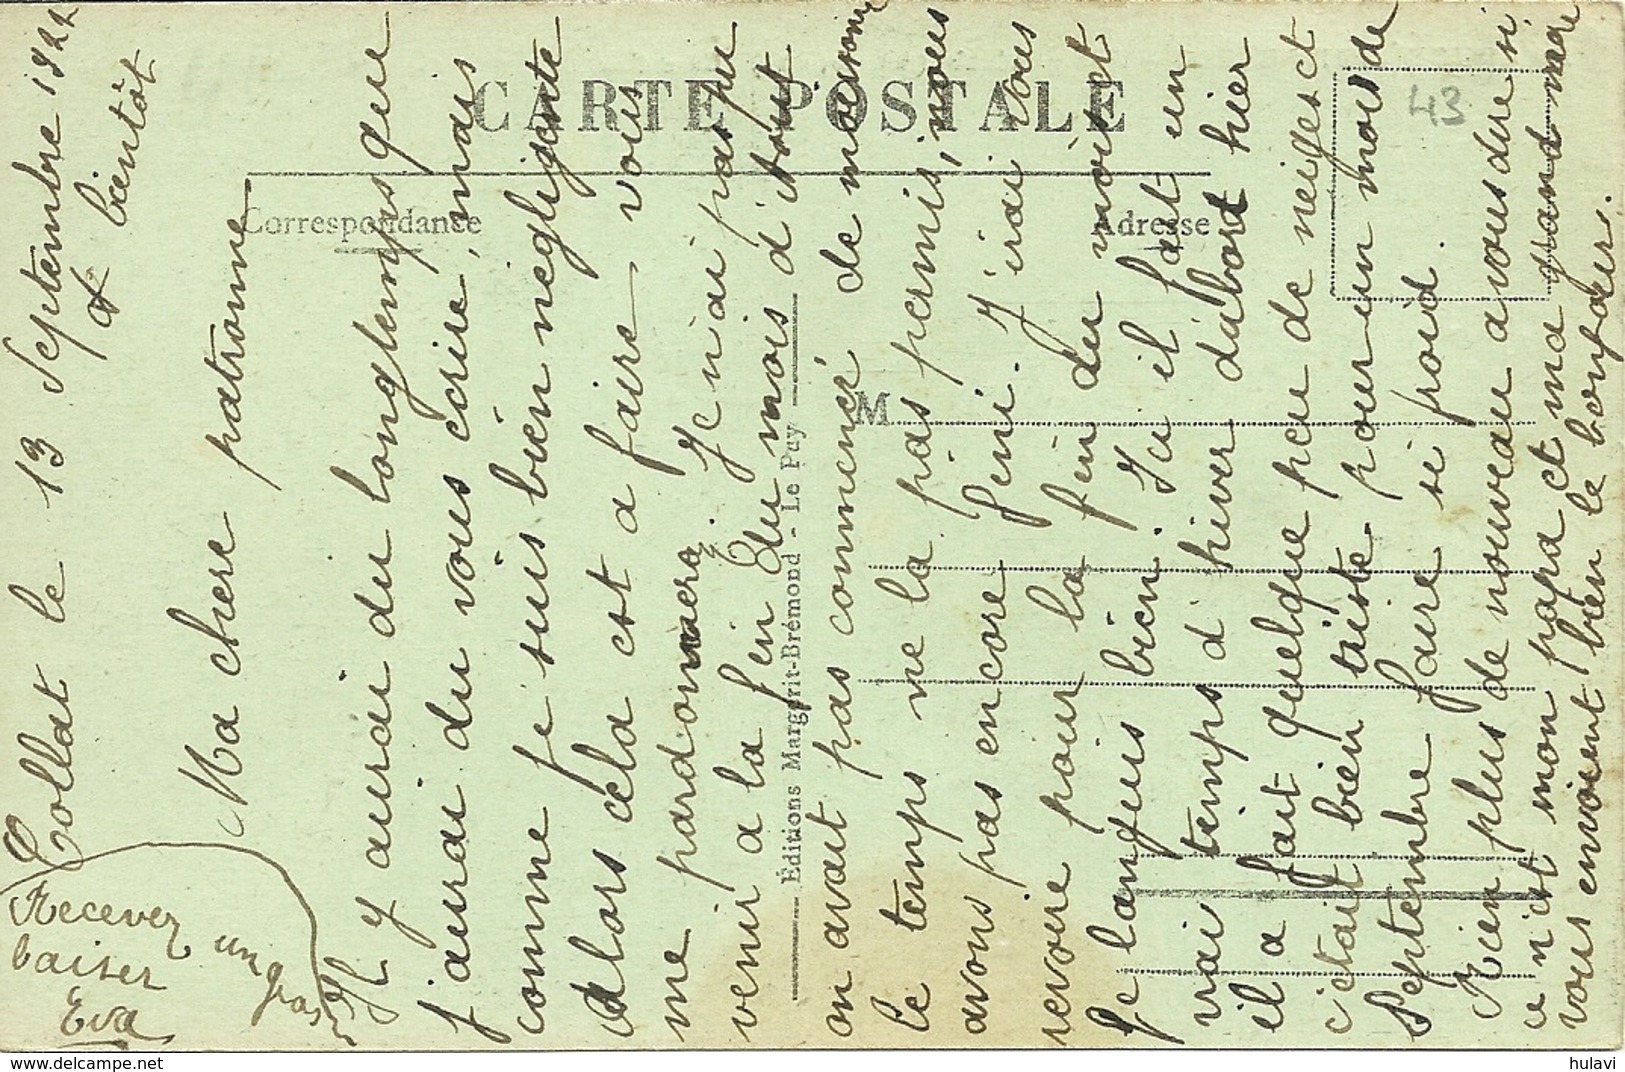 Collat le 13 Septembre 1922
a bientôt
Ma chere patronne
Il y aurai du longtemps que
j'aurai du vous ecrire, mais
comme je suis bien negligente
Alors cela est a faire vous
me pardonnera. Je n'ai pas pu
venir a la fin du mois d'Aout
on avait pas commencé de moissonne
le temps ne la pas permis, nous
avons pas encore fini. J'irai vous
revoire pour la fin du mois et
je languis bien. Ici il fait un
vrai temps d'hiver d'abord hier
il a fait quelque peu de neiges et
c'etait bien triste pour un mois de
Septembre faire si froid.
Rien plus de nouveau a vous dire si
ce n'est mon papa et ma grand mere
vous envoient bien le bonjour.
Recever
un gros
baiser
Eva
CARTE POSTALE
Correspondance
Adresse
M
Éditions Margerit-Brémond - Le Puy
43
hulavi